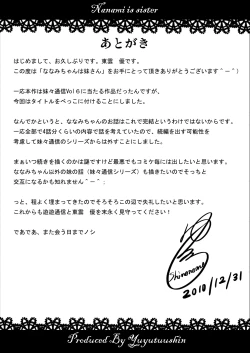 Nanami is sister
あとがき
はじめまして、お久しぶりです。東雲　優です。
この度は「ななみちゃんは妹さん」をお手にとって頂きありがとうございます＾－＾）
一応本作は妹々通信Vol６に当たる作品だったんですが、
今回はタイトルをべっこに付けることにしました。
なんでかというと、ななみちゃんのお話はこれで完結というわけではないんですが、
一応全部で4話分くらいの内容で話を考えていたので、続編を出す可能性を
考慮して妹々通信のシリーズからは外すことにしました。
まぁいつ続きを描くのかは謎ですけど最悪でもコミケ毎には出したいと思います。
ななみちゃん以外の妹の話（妹々通信シリーズ）も描きたいのでそっちと
交互になるかも知れませんが＾－＾；
っと、程よく埋まってきたのでそろそろこの辺で失礼したいと思います。
これからも迫迫通信と東雲　優を末永く見守ってください！
であであ、また会う日までノシ
Shinonome
2010/12/31
Produced By Yuyutuushin